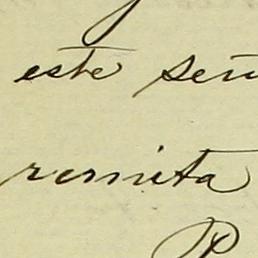 este señ
remita
R